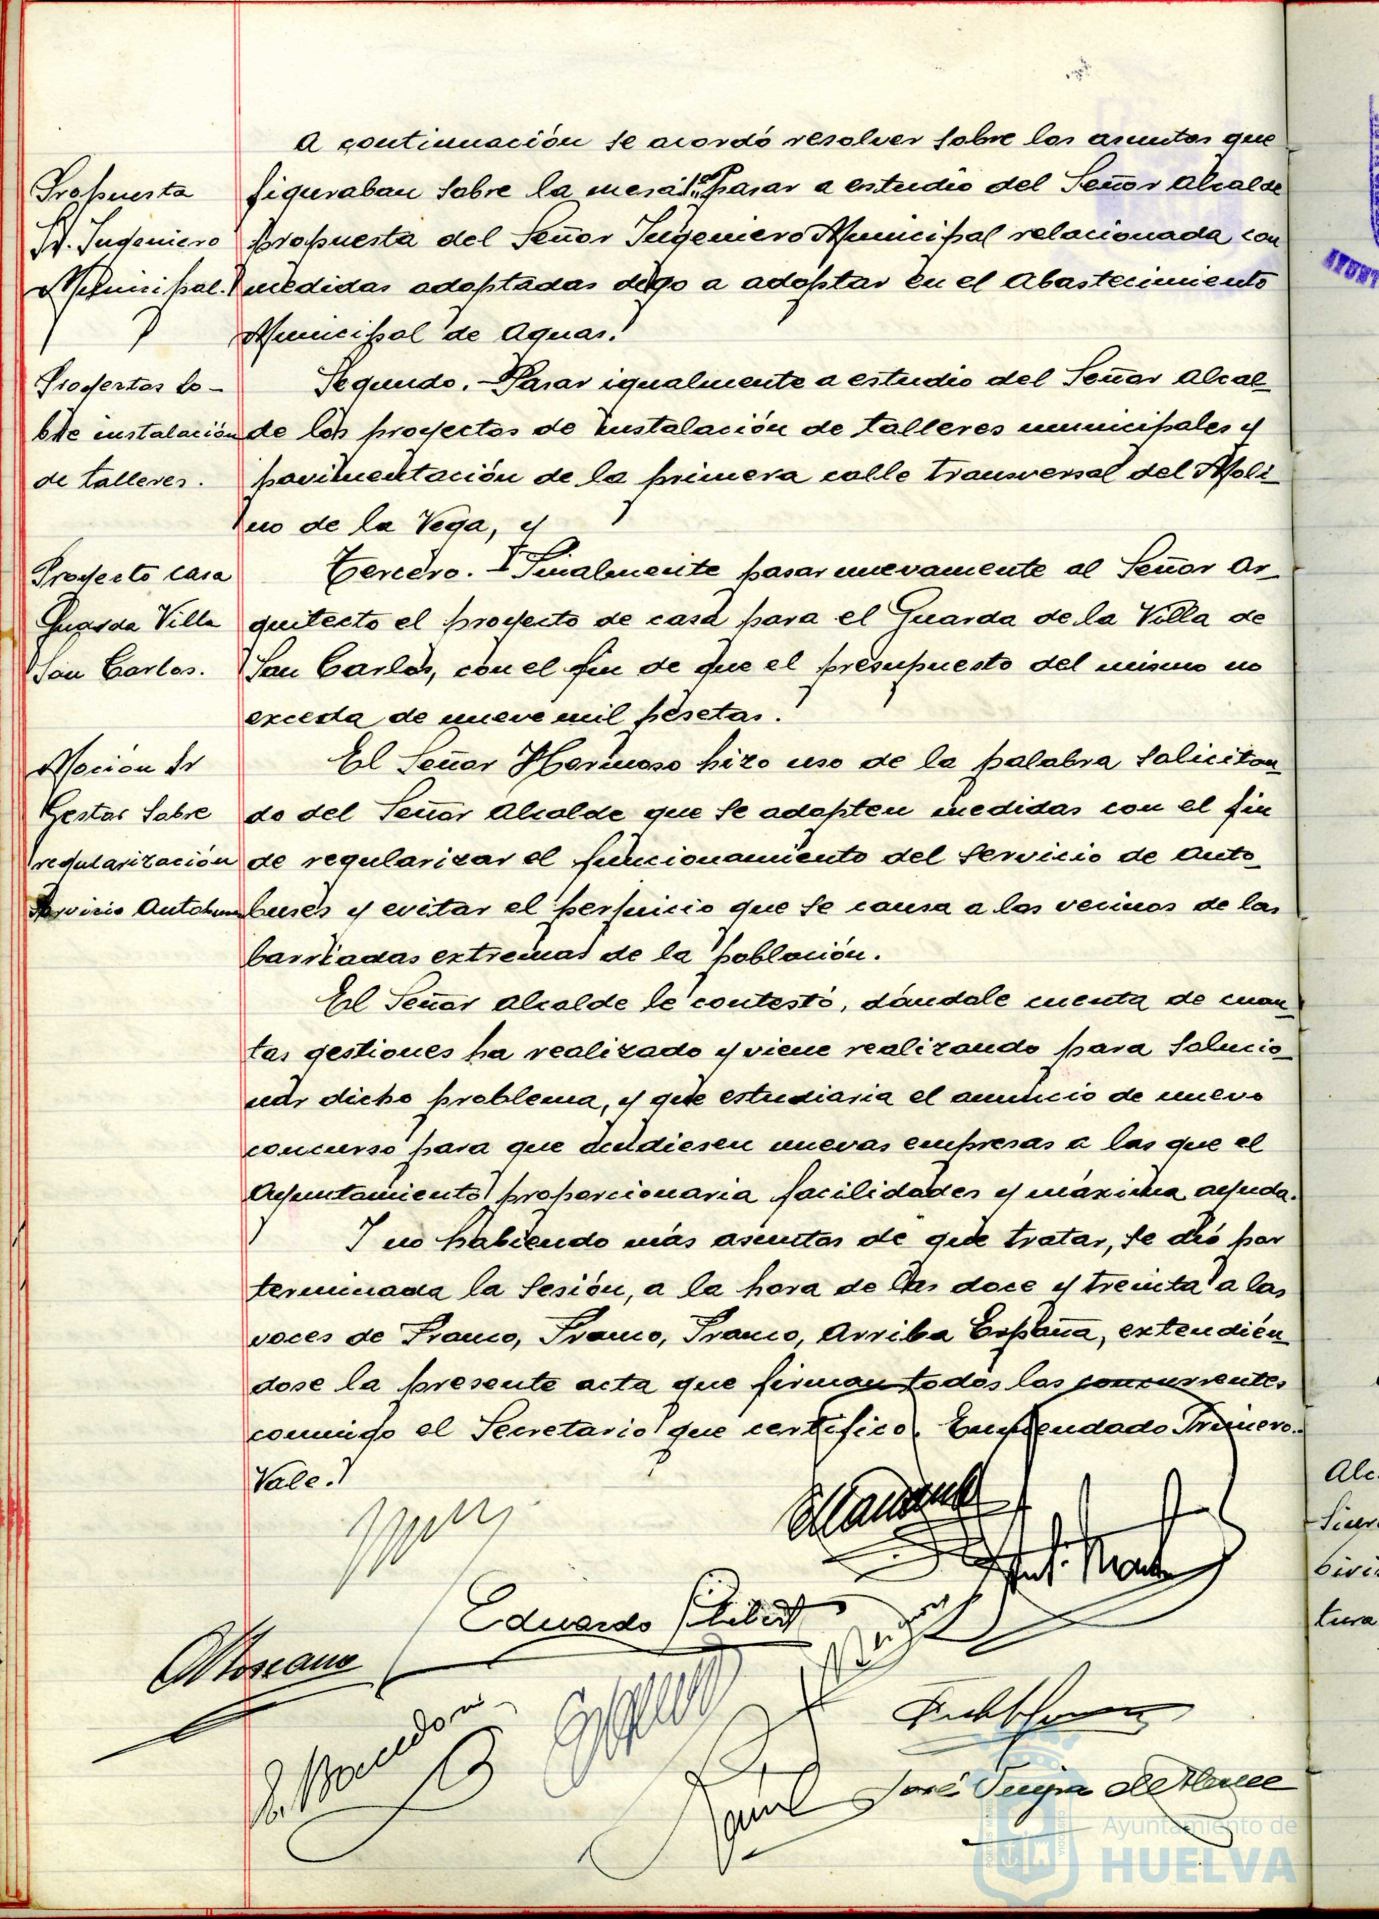 A continuación se acordó resolver sobre los asuntos que
Propuesta
Sr. Ingeniero
Municipal.
figuraban sobre la mesa: 1º Pasar a estudio del Señor Alcalde
propuesta del Señor Ingeniero Municipal relacionada con
medidas adoptadas digo a adoptar en el Abastecimiento
Municipal de Aguas.
Proyectos so-
bre instalación
de talleres.
Segundo.- Pasar igualmente a estudio del Señor Alcal-
de los proyectos de instalación de talleres municipales y
pavimentación de la primera calle transversal del Moli-
no de la Vega, y
Proyecto casa
Guarda Villa
San Carlos.
Tercero.- Finalmente pasar nuevamente al Señor Ar-
quitecto el proyecto de casa para el Guarda de la Villa de
San Carlos, con el fin de que el presupuesto del mismo no
exceda de nueve mil pesetas.
Moción Sr
Gestor sobre
regularización
servicio Autobuses
El Señor Hermoso hizo uso de la palabra solicitan-
do del Señor Alcalde que se adopten medidas con el fin
de regularizar el funcionamiento del servicio de Auto-
buses y evitar el perjuicio que se causa a los vecinos de las
barriadas extremas de la población.
El Señor Alcalde le contestó, dándole cuenta de cuan-
tas gestiones ha realizado y viene realizando para solucio-
nar dicho problema, y que estudiaria el anuncio de nuevo
concurso para que acudiesen nuevas empresas a las que el
Ayuntamiento proporcionaria facilidades y máxima ayuda.
Y no habiendo más asuntos de que tratar, se dió por
terminada la sesión, a la hora de las doce y treinta a las
voces de Franco, Franco, Franco, Arriba España, extendién-
dose la presente acta que firman todos los concurrentes
conmigo el Secretario que certifico. Enmendado Primero.-
Vale.
Eduardo
José
Ayuntamiento de
HUELVA
Alc
tura